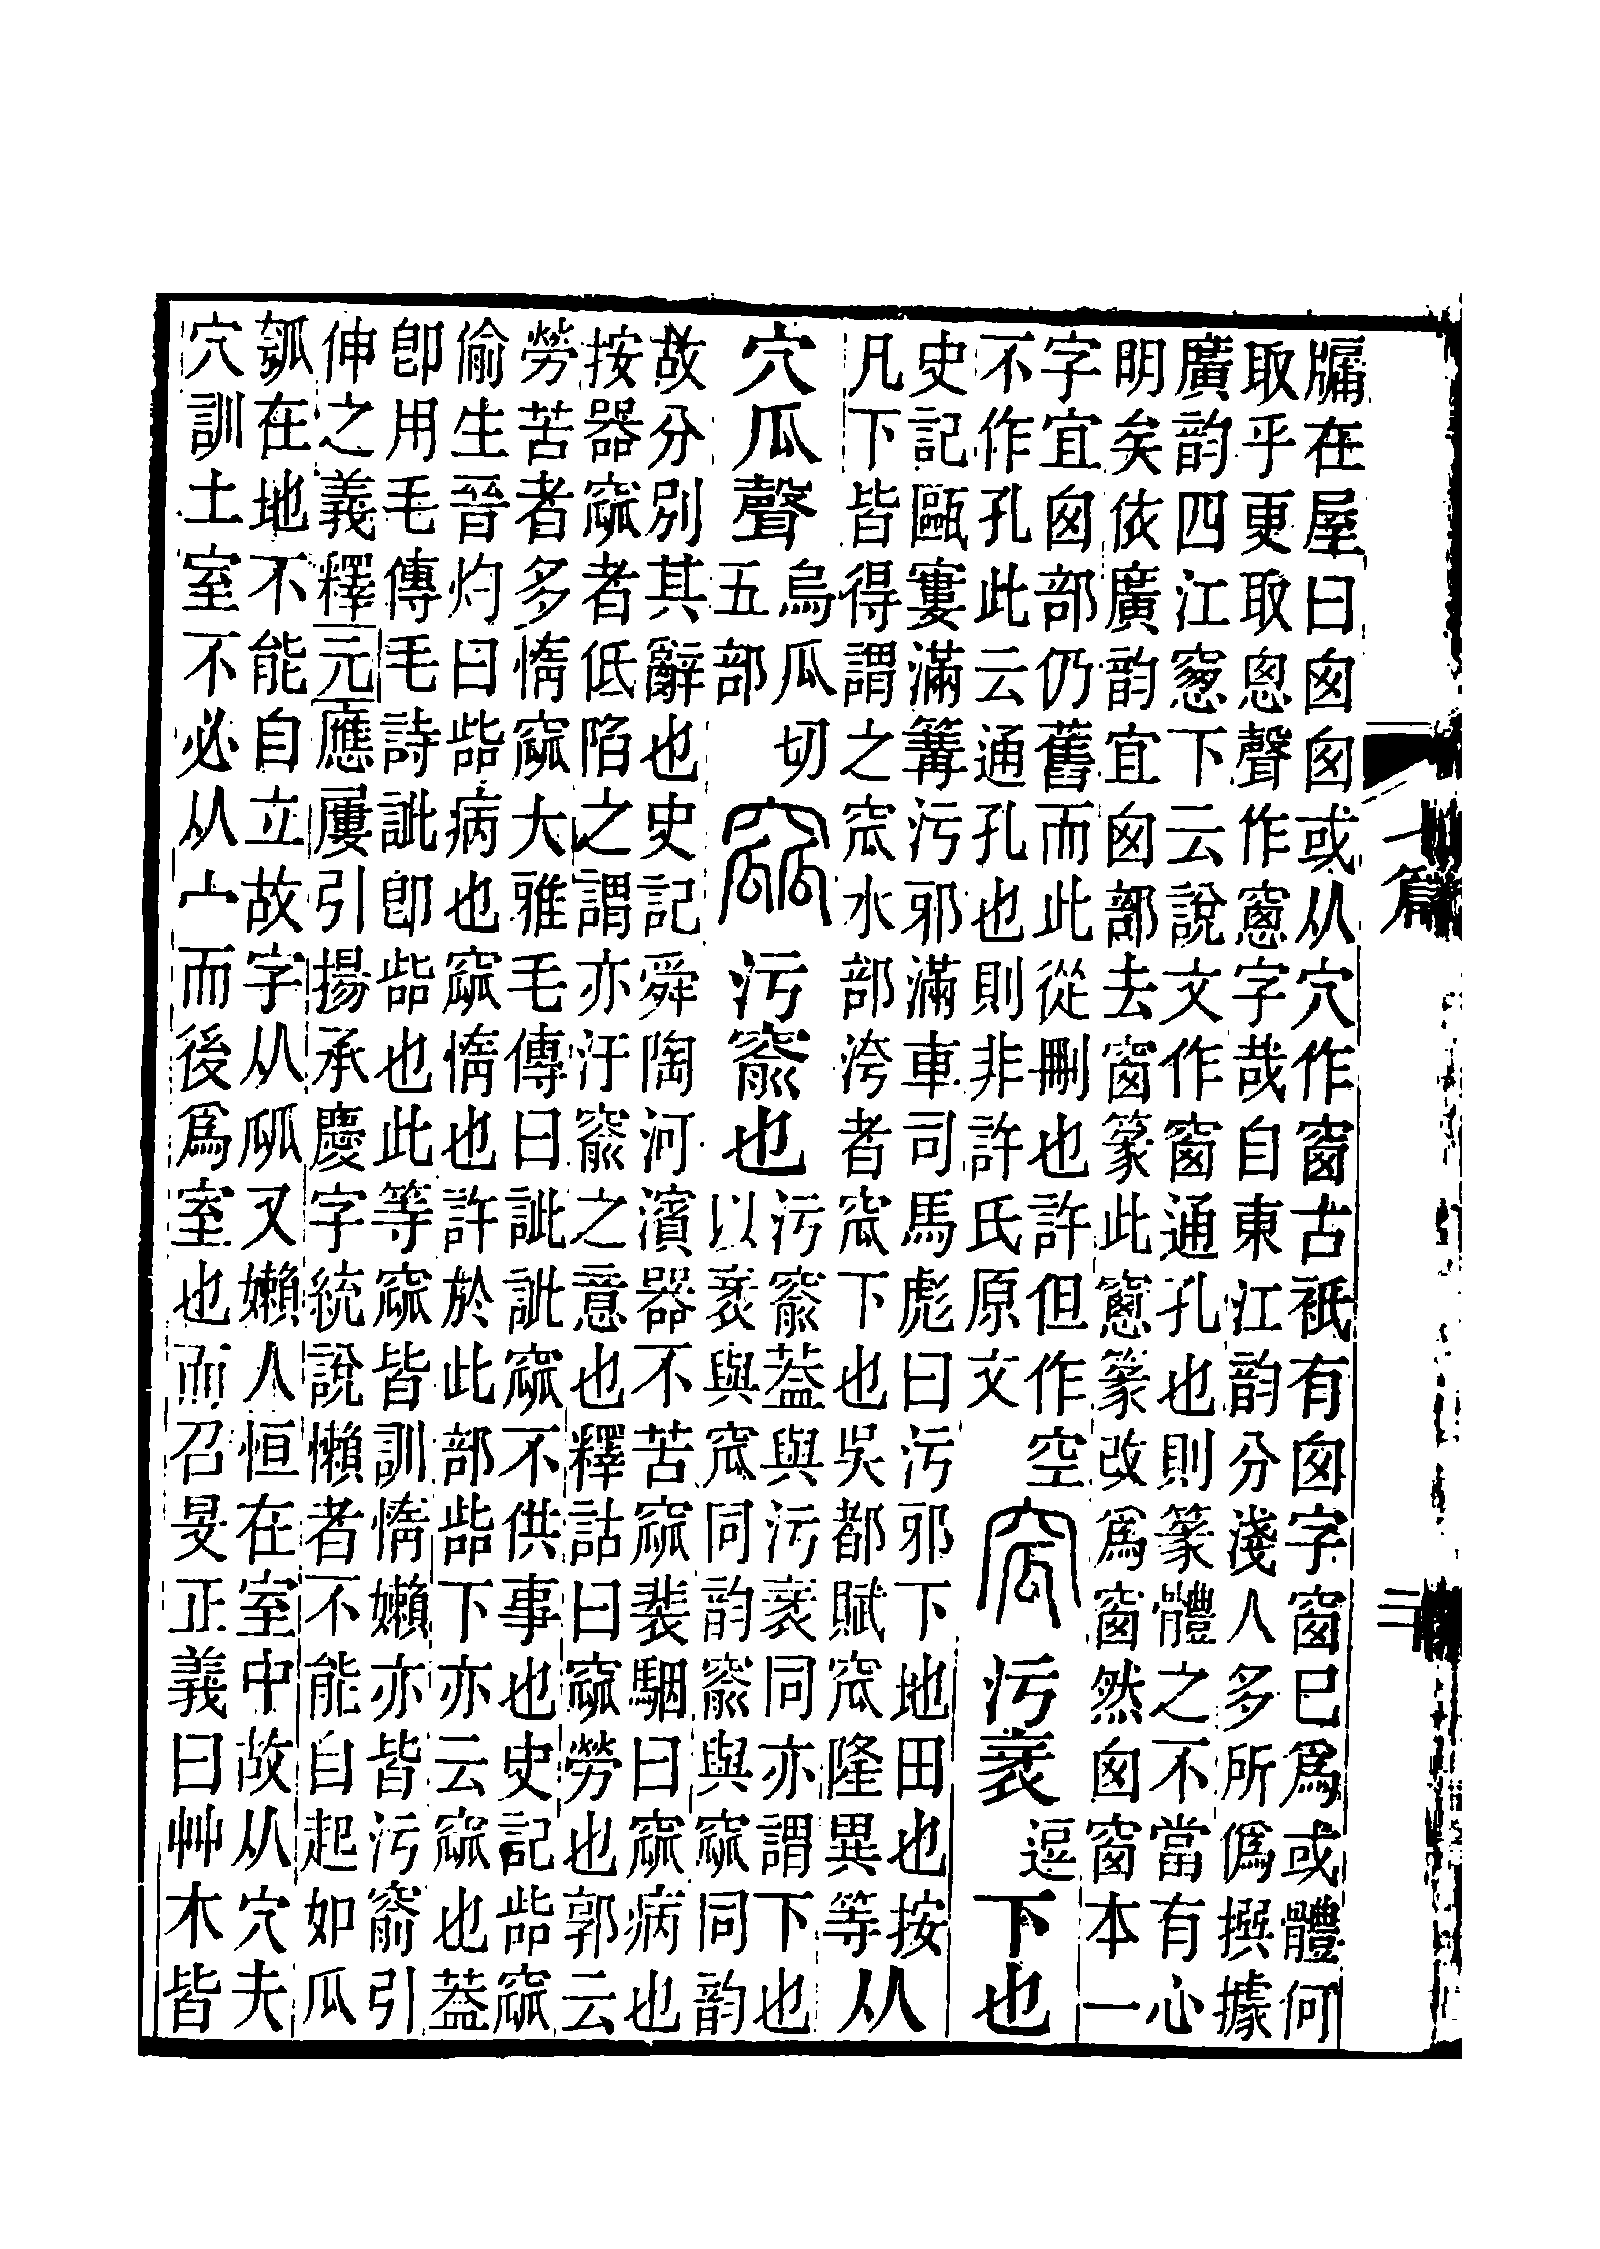 牖在屋曰囪囪或从穴作窗古祇有囪字窗已爲或體何
取乎更取悤聲作窻字哉自東江韵分淺人多所僞撰據
廣韵四江窻下云說文作窗通孔也則篆體之不當有心
明矣依廣韵宜囪部去窗篆此窻篆改爲窗然囪窗本一
字宜囪部仍舊而此從刪也許但作空
不作孔此云通孔也則非許氏原文
窊 污衺逗下也
史記甌窶滿篝污邪滿車司馬彪曰污邪下地田也按
凡下皆得謂之窊水部洿者窊下也吳都賦窊隆異等
从
穴瓜聲
烏瓜切
五部
窳 污窬也
污窬葢與污衺同亦謂下也
以衺與窊同韵窬與窳同韵
故分別其辭也史記舜陶河濱器不苦窳裴駰曰窳病也
按器窳者低陷之謂亦汙窬之意也釋詁曰窳勞也郭云
勞苦者多惰窳大雅毛傳曰訿訿窳不供事也史記呰窳
偷生晉灼曰呰病也窳惰也許於此部呰下亦云窳也葢
卽用毛傳毛詩訿卽呰也此等窳皆訓惰嬾亦皆污窬引
伸之義釋元應屢引揚承慶字統說懶者不能自起如瓜
瓠在地不能自立故字从㼌又嬾人恒在室中故从穴夫
穴訓土室不必从宀而後爲室也而召旻正義曰艸木皆